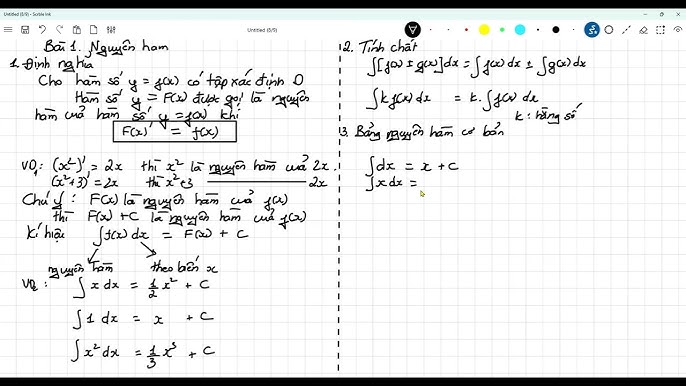 Untitled (8/9) - Scrble Ink
Untitled (8/9)
Bài 1. Nguyên hàm
1. Định nghĩa
Cho hàm số y = f(x) có tập xác định D
Hàm số y = F(x) được gọi là nguyên
hàm của hàm số y = f(x) khi
F(x)' = f(x)
VD1: (x²)' = 2x thì x² là nguyên hàm của 2x.
(x²+3)' = 2x thì x²+3 ——— 2x
Chú ý: F(x) là nguyên hàm của f(x)
thì F(x) + C là nguyên hàm của f(x)
Kí hiệu ∫f(x) dx = F(x) + C
nguyên hàm theo biến x
VD2: ∫x dx = 1/2 x² + C
∫1 dx = x + C
∫x² dx = 1/3 x³ + C
2. Tính chất
∫[f(x) ± g(x)] dx = ∫f(x) dx ± ∫g(x) dx
∫k f(x) dx = k. ∫f(x) dx
k: hằng số
3. Bảng nguyên hàm cơ bản
∫dx = x + C
∫x dx =